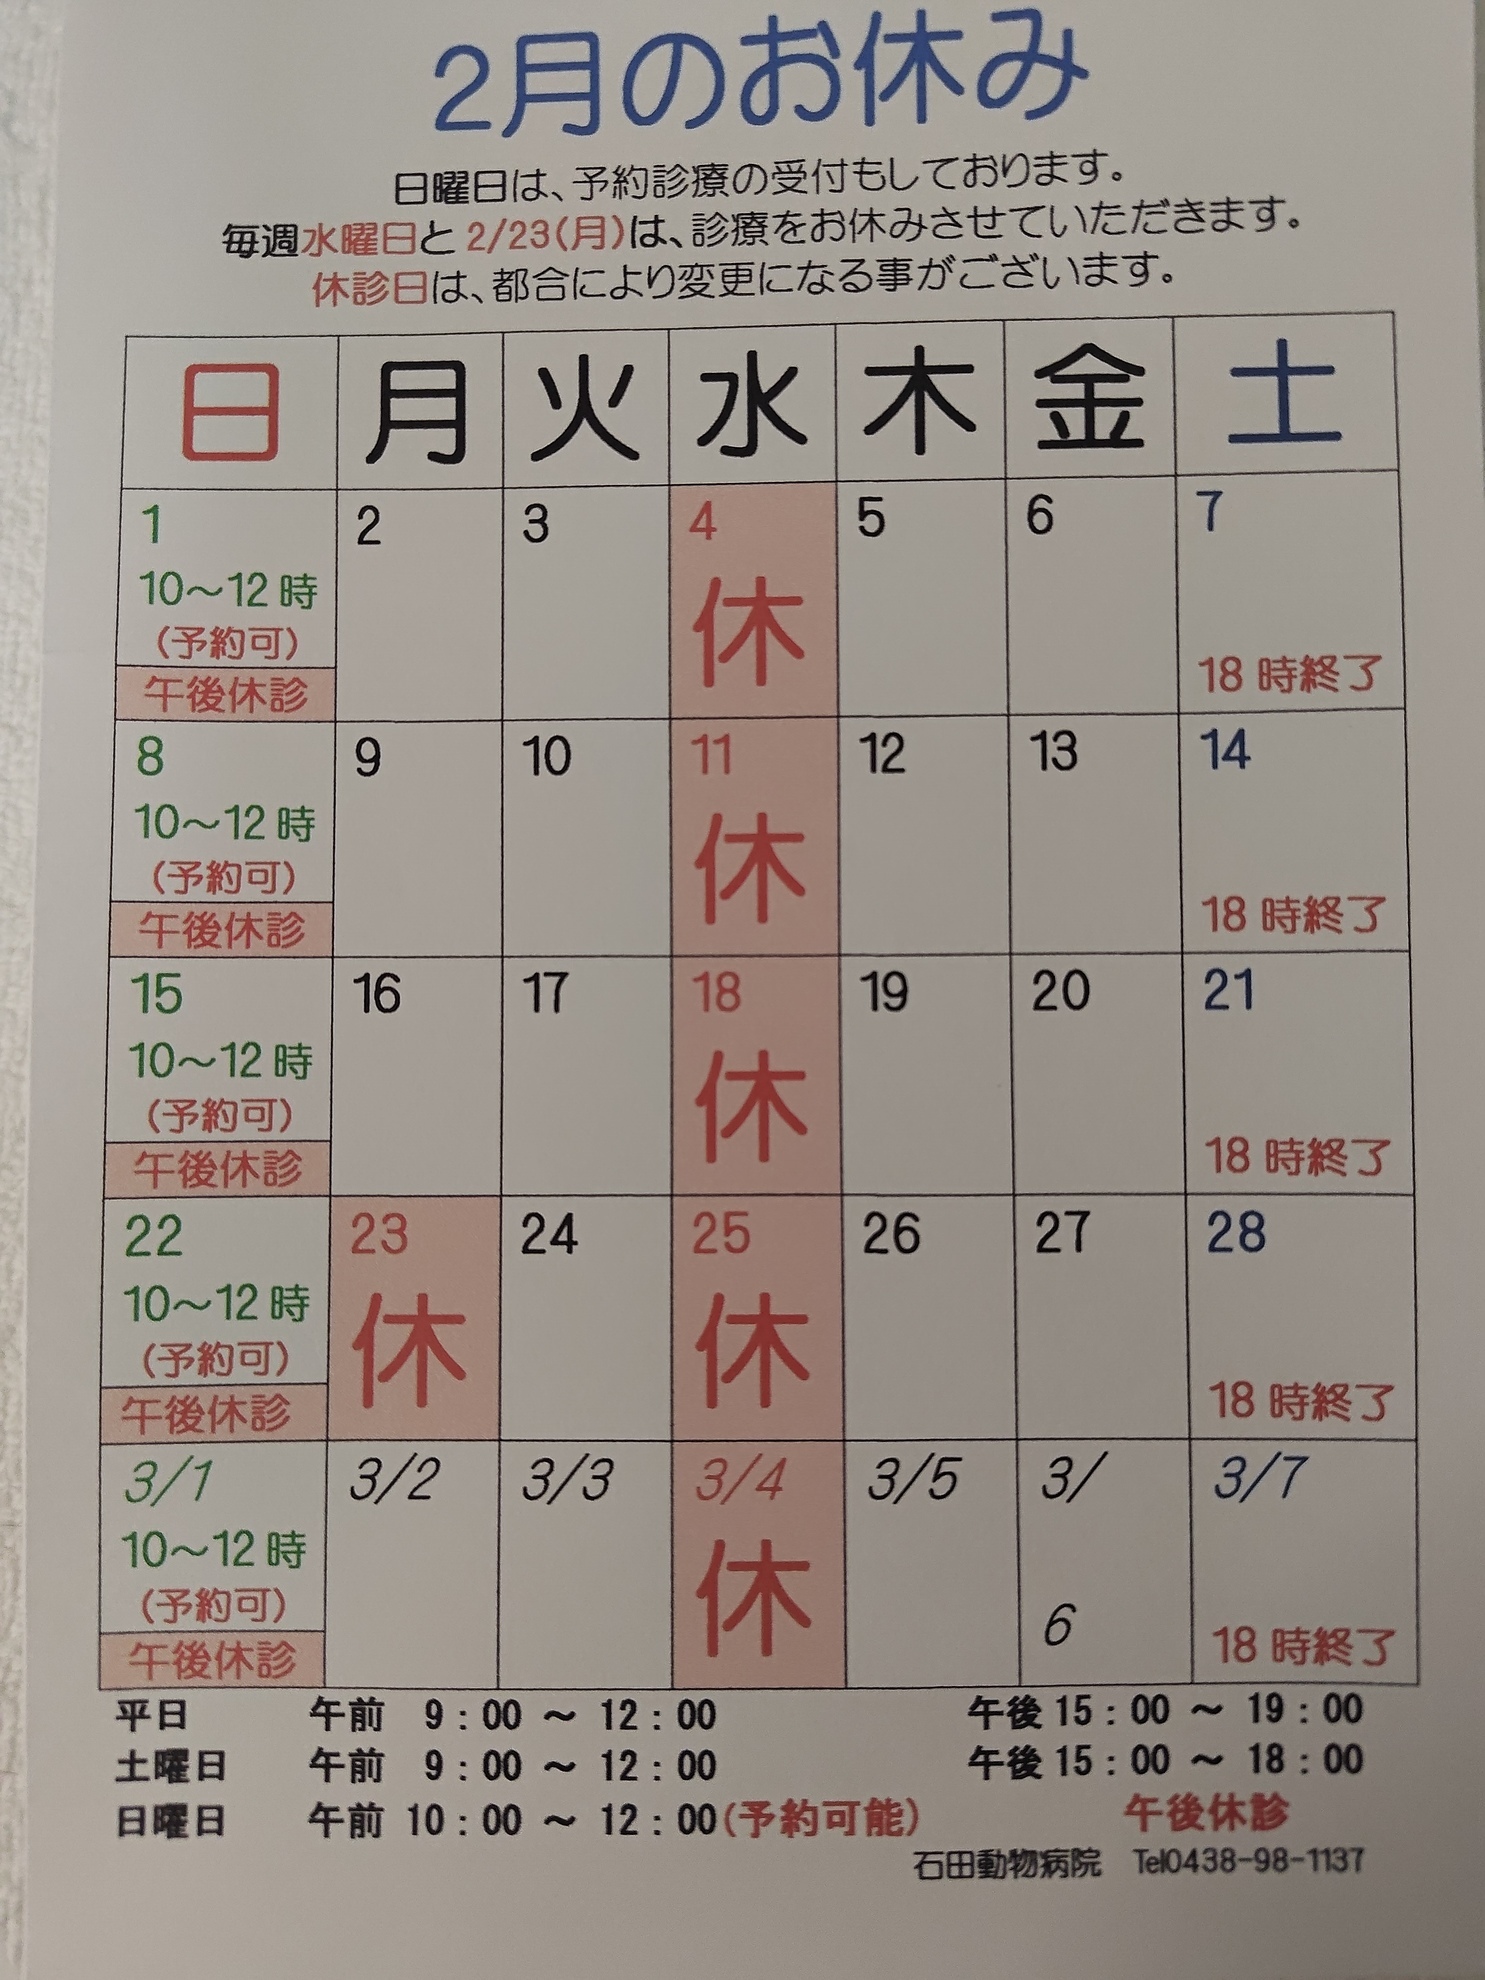 2月のお休み
日曜日は、予約診療の受付もしております。
毎週水曜日と 2/23(月)は、診療をお休みさせていただきます。
休診日は、都合により変更になる事がございます。
日 月 火 水 木 金 土
1 2 3 4 5 6 7
10～12時 休
(予約可)
午後休診 18時終了
8 9 10 11 12 13 14
10～12時 休
(予約可)
午後休診 18時終了
15 16 17 18 19 20 21
10～12時 休
(予約可)
午後休診 18時終了
22 23 24 25 26 27 28
10～12時 休 休
(予約可)
午後休診 18時終了
3/1 3/2 3/3 3/4 3/5 3/ 3/7
10～12時 休
(予約可) 6
午後休診 18時終了
平日 午前 9：00 ～ 12：00 午後15：00 ～ 19：00
土曜日 午前 9：00 ～ 12：00 午後15：00 ～ 18：00
日曜日 午前 10：00 ～ 12：00(予約可能) 午後休診
石田動物病院 Tel0438-98-1137